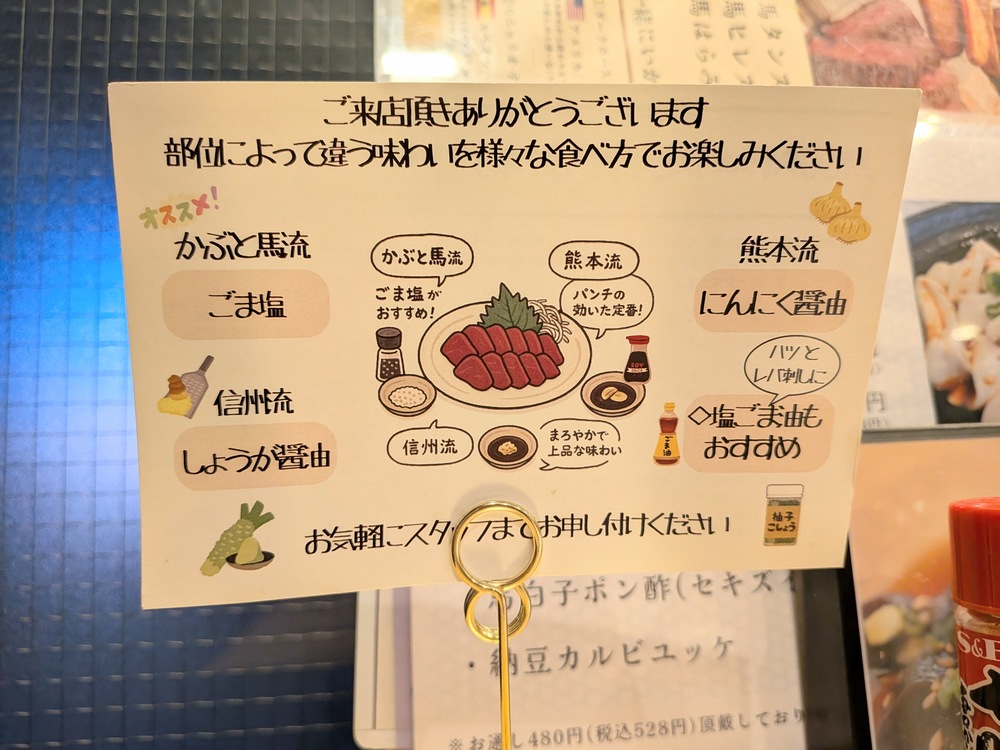 ご来店頂きありがとうございます
部位によって違う味わいを様々な食べ方でお楽しみください
オススメ!
かぶと馬流
ごま塩
信州流
しょうが醤油
かぶと馬流
ごま塩が
おすすめ!
熊本流
パンチの
効いた定番!
SOY
信州流
まろやかで
上品な味わい
熊本流
にんにく醤油
ハツと
レバ刺しに
◇塩ごま油も
おすすめ
ごま油
柚子
こしょう
お気軽にスタッフまでお申し付けください
馬タンス
馬ヒレス
馬はらみ
白子ポン酢(セキズイ
・納豆カルビユッケ
※お通し480円(税込528円)頂戴しており
S&B
円